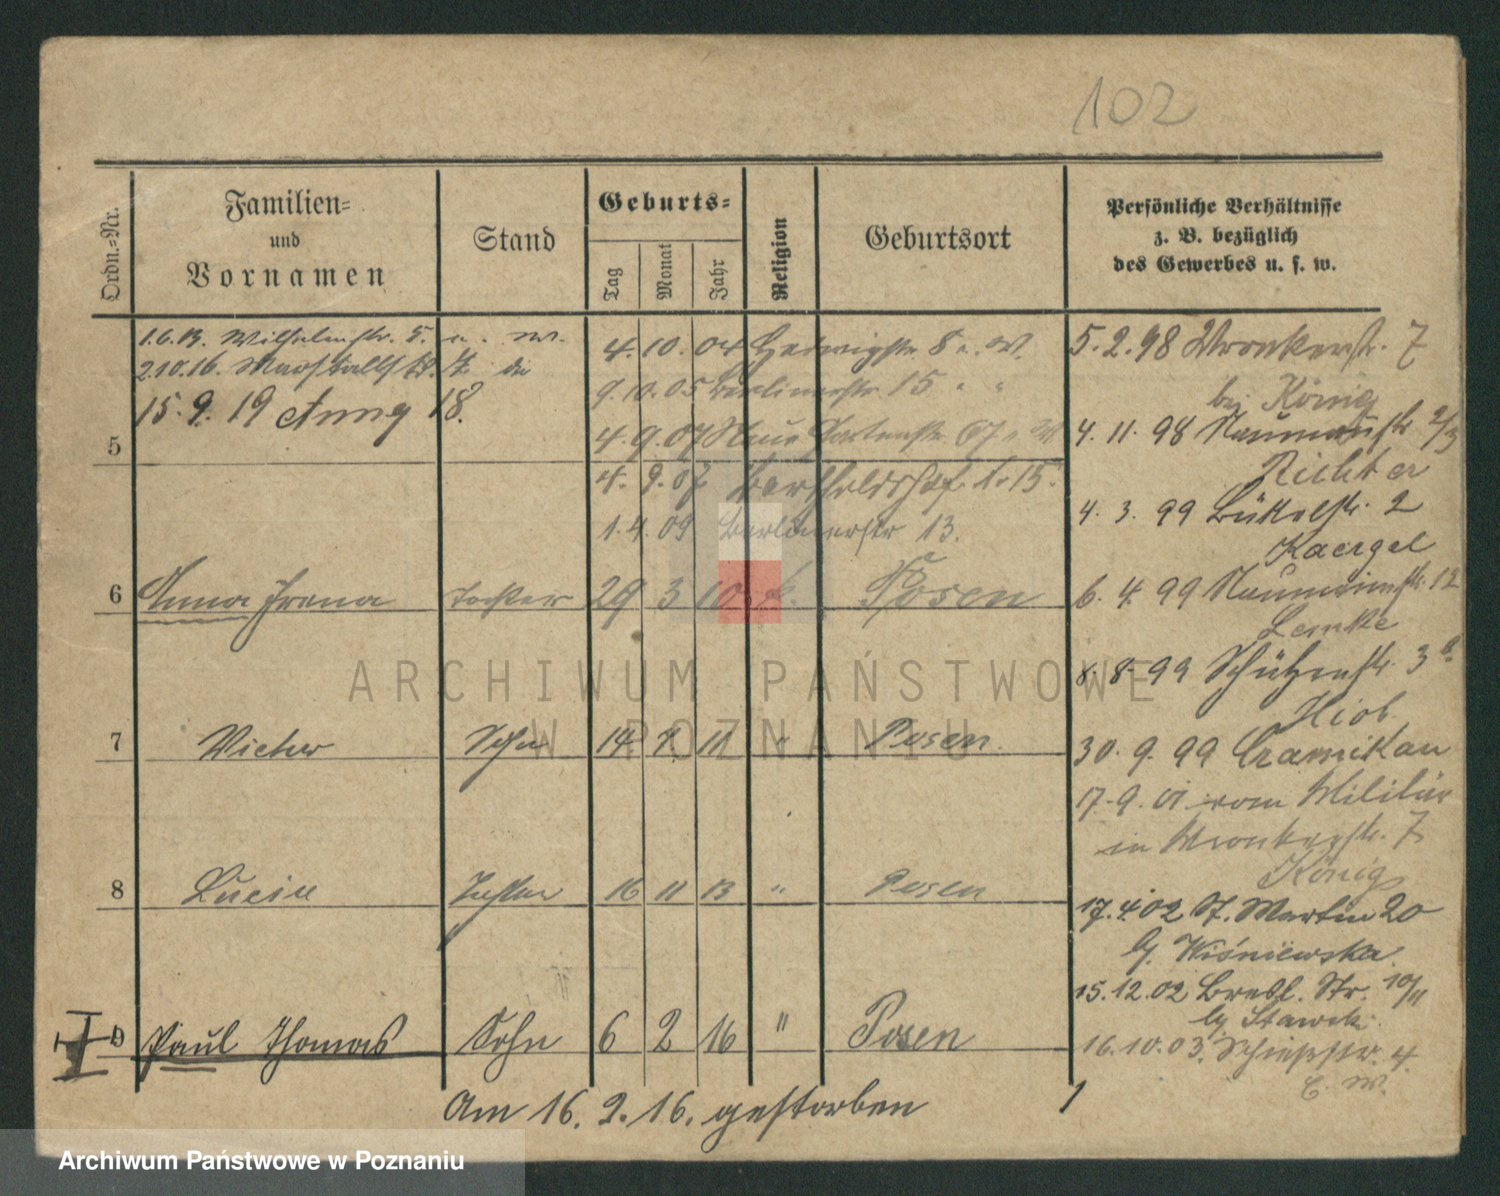 102
Ordn.-Nr.
Familien-
und
Vornamen
Stand
Geburts-
Tag
Monat
Jahr
Religion
Geburtsort
Persönliche Verhältnisse
z. B. bezüglich
des Gewerbes u. s. w.
1.6.13. Wilhelmstr. 5. u. w.
2.10.16.
15. 9. 19 18.
4. 10. 04 Hedwigstr. 8 u. W.
9. 10. 05 Berlinerstr. 15 " "
4. 9. 07 Neue Gartenstr. 67 u. W
4. 9. 07 15.
1. 4. 09 Berlinerstr 13.
5
6 Anna Irena Tochter 29 3 10 k. Posen
7 Victor Sohn 14. 7. 11 " Posen.
8 Lucie Tochter 16 11 13 " Posen
9 Paul Thomas Sohn 6 2 16 " Posen
Am 16. 2. 16. gestorben
5. 2. 98 Wronkerstr. 7
bei König
4. 11. 98 Naumannstr 2/3
Richter
4. 3. 99 Bükelstr. 2
Kaergel
6. 4. 99 Naumannstr. 12
Lemke
8. 8. 99 Schützenstr. 3
Hiob
30. 9. 99 Czarnikau
17. 9. 01 vom Militär
in Wronkerstr. 7
König
17. 4. 02 St. Martin 20
b. Wiśniewska
15. 12. 02 Bresl. Str. 10/11
b.
16. 10. 03. Schießstr. 4.
E. W.
ARCHIWUM PAŃSTWOWE
W POZNANIU
Archiwum Państwowe w Poznaniu